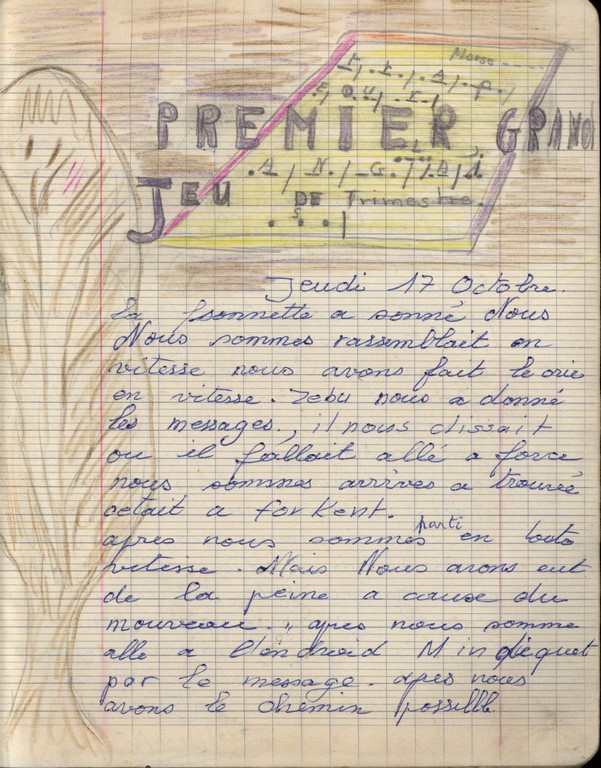 Morse
PREMIER GRAND
JEU DE Trimestre.
Jeudi 17 Octobre.
la sonnette a sonné Nous
Nous sommes rassemblait en
vitesse nous avons fait le crie
en vitesse. Zebu nous a donné
les messages., il nous dissait
ou il fallait allé a force
nous sommes arrives a trouvée
cetait a for Kent.
apres nous sommes parti en toute
vitesse. Mais Nous avons eut
de la peine a cause du
mouveau. apres nous somme
allé a l'endroad Mindiquet
par le message. apres nous
avons le chemin possible